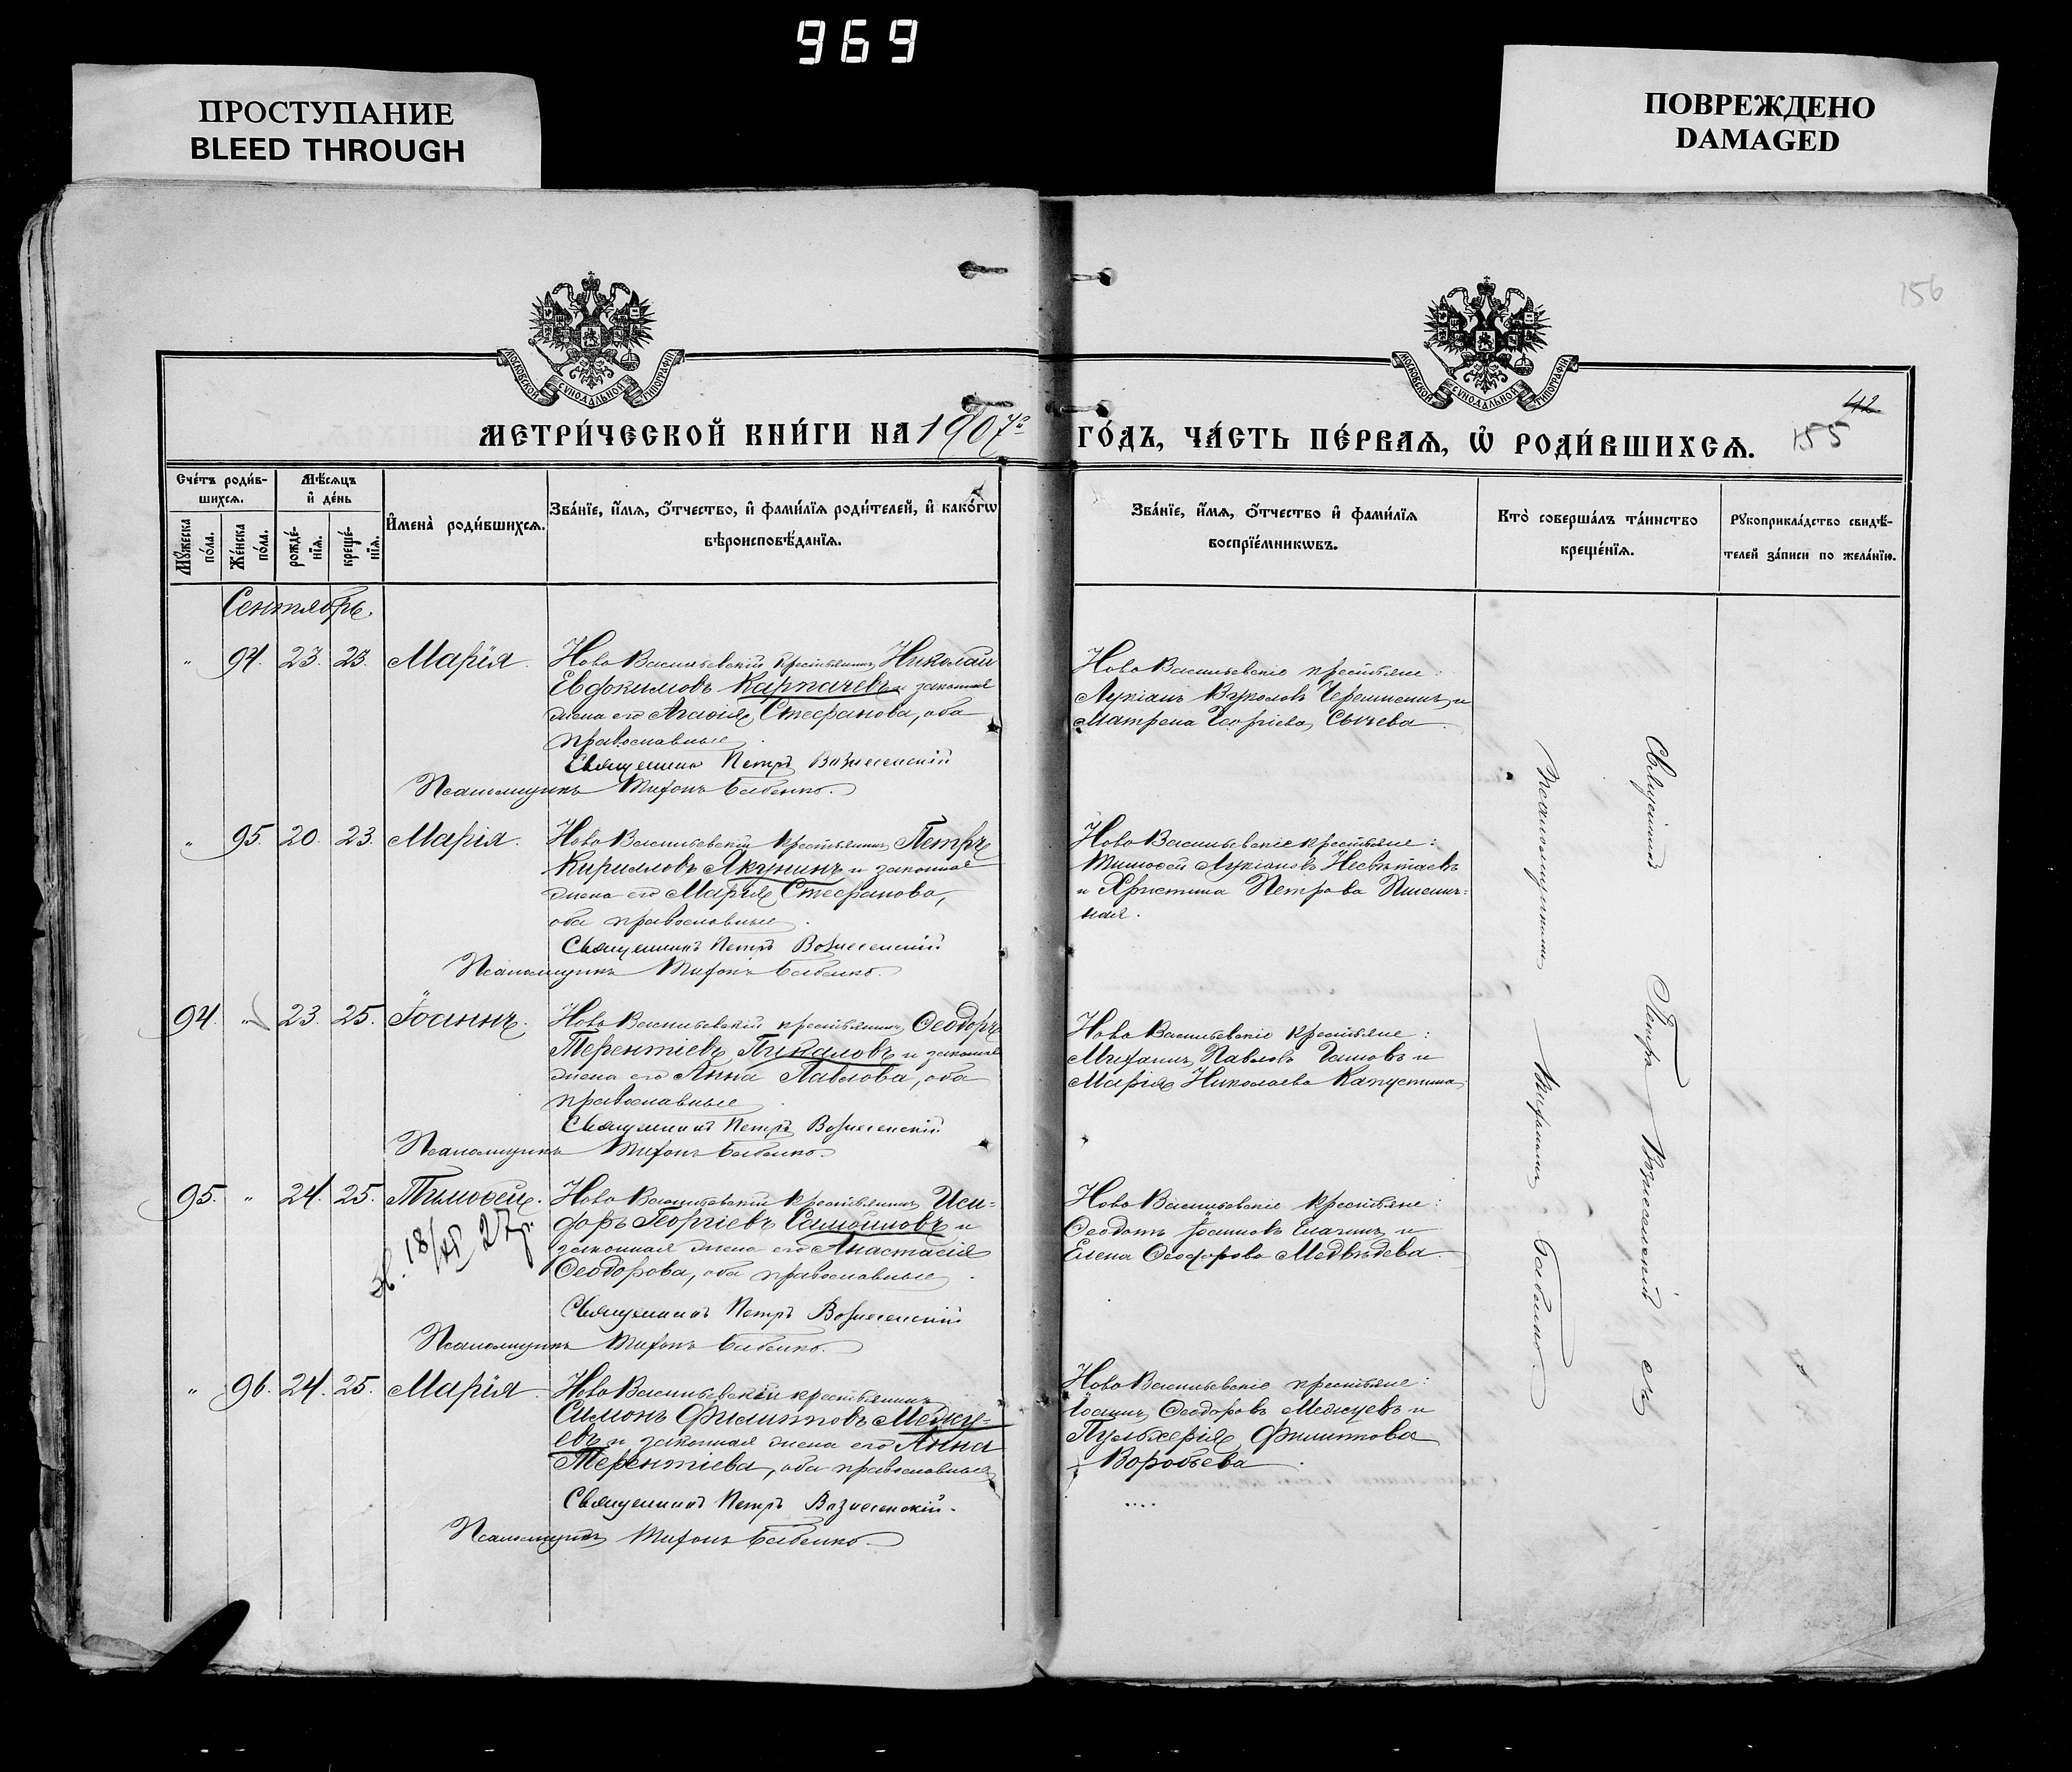 969
ПРОСТУПАНИЕ
BLEED THROUGH
ПОВРЕЖДЕНО
DAMAGED
156
МОСКОВСКОЙ СѴНОДАЛЬНОЙ ТИПОГРАФІИ
МОСКОВСКОЙ СѴНОДАЛЬНОЙ ТИПОГРАФІИ
42
МЕТРИ́ЧЕСКОЙ КНИ́ГИ НА 1907 ГО́ДЪ, ЧА́СТЬ ПЕ́РВАѦ, Ѡ҆ РОДИ́ВШИХСѦ. 155
Сче́тъ роди́в-
шихсѧ.
Мꙋ́жеска по́ла.
Же́нска по́ла.
Мѣ́сѧцъ
и҆ де́нь
рожде́-
нїѧ.
креще́-
нїѧ.
И҆мена̀ роди́вшихсѧ.
Зва́нїе, и҆́мѧ, ѻ҆́тчество, и҆ фами́лїѧ роди́телей, и҆ како́гѡ
вѣроисповѣ́данїѧ.
Зва́нїе, и҆́мѧ, ѻ҆́тчество и҆ фами́лїѧ
воспрїе́мникѡвъ.
Кто̀ соверша́лъ та́инство
креще́нїѧ.
Рꙋкоприкла́дство свидѣ́-
телей за́писи по жела́нїю.
Сентябрь.
" 94. 23. 23. Марія. Ново Васильевскій крестьянинъ Николай
Евфимовъ Карпачевъ и законная
жена его Агаѳія Стефанова, оба
православные
Священникъ Петръ Вознесенскій
Псаломщикъ Тихонъ Бабенко.
Ново Васильевскіе крестьяне:
Лукіанъ Вуколовъ и
Матрена Георгіева Сычева
" 95. 20. 23. Марія. Ново Васильевскій крестьянинъ Петръ
Кириловъ Якунинъ и законная
жена его Марія Стефанова,
оба православные
Священникъ Петръ Вознесенскій
Псаломщикъ Тихонъ Бабенко.
Ново Васильевскіе крестьяне:
Тимоѳей Лукіановъ Несвѣтаевъ
и Христина Петрова Пшенич-
ная.
94. " 23. 25. Іоаннъ. Ново Васильевскій крестьянинъ Ѳеодоръ
Терентіевъ Пикаловъ и законная
жена его Анна Павлова, оба
православные
Священникъ Петръ Вознесенскій
Псаломщикъ Тихонъ Бабенко.
Ново Васильевскіе крестьяне:
Михаилъ Павловъ и
Марія Николаева Капустина
95. " 24. 25. Тимоѳей. Ново Васильевскій крестьянинъ Иси-
доръ Георгіевъ Самойловъ и
законная жена его Анастасія
Ѳеодорова, оба православные
18/ 27 г.
Священникъ Петръ Вознесенскій
Псаломщикъ Тихонъ Бабенко.
Ново Васильевскіе крестьяне:
Ѳеодотъ Іоанновъ Елагинъ и
Елена Ѳеодорова Медвѣдева
" 96. 24. 25. Марія. Ново Васильевскій крестьянинъ
Симонъ Филипповъ Межу-
евъ и законная жена его Анна
Терентіева, оба православные
Священникъ Петръ Вознесенскій.
Псаломщикъ Тихонъ Бабенко.
Ново Васильевскіе крестьяне:
Іоаннъ Ѳеодоровъ Межуевъ и
Пульхерія Филиппова
Воробьева
Священникъ Петръ Вознесенскій съ
Псаломщикомъ Тихономъ Бабенко